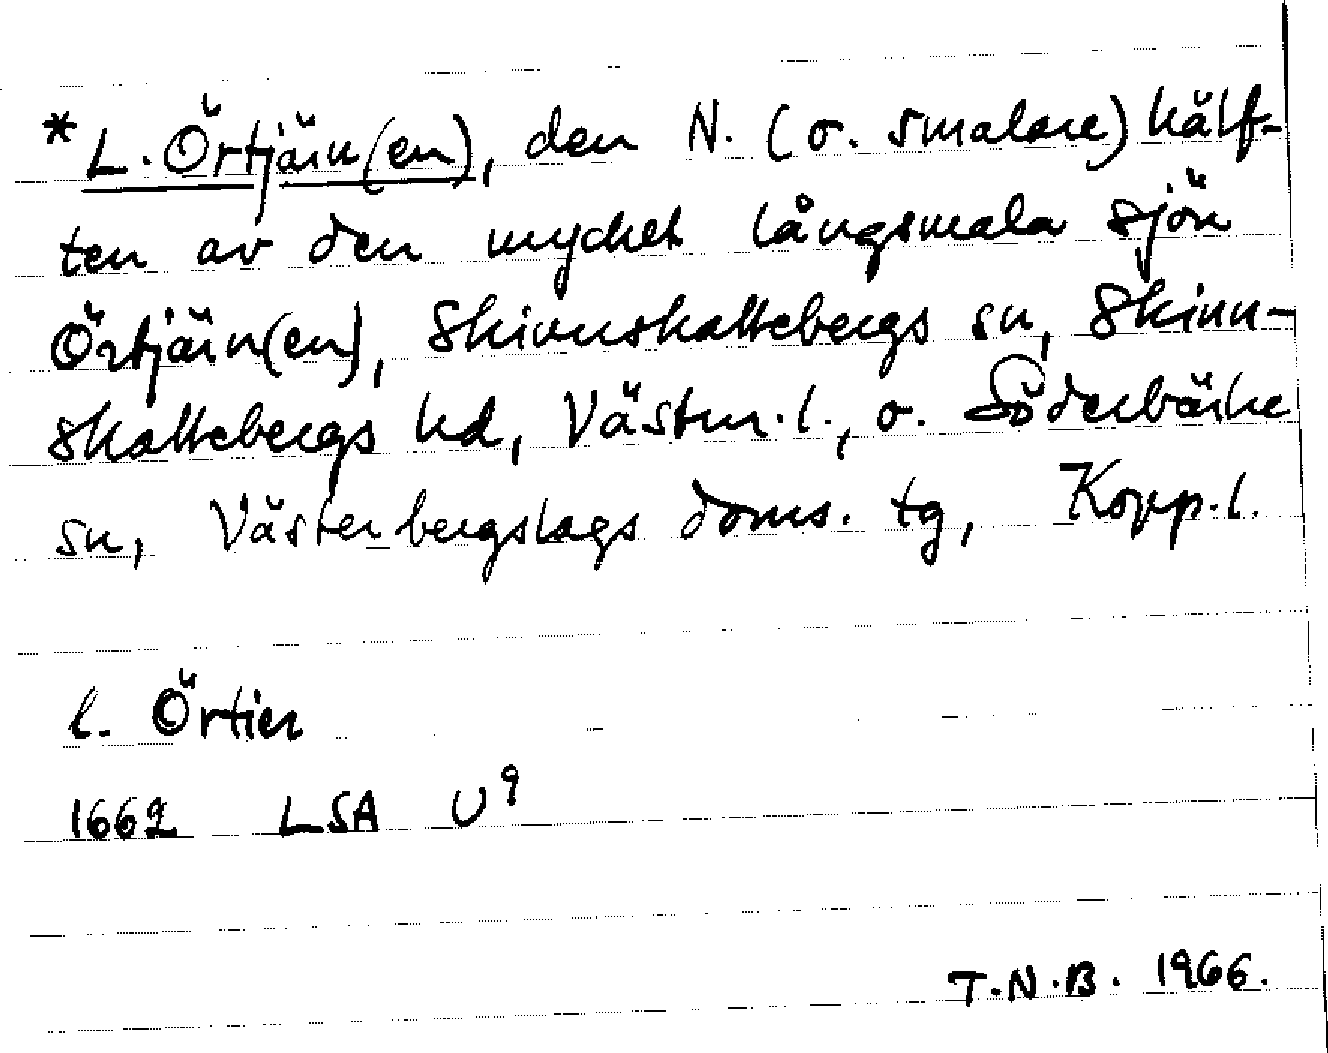 *L. Örtjärn(en), den N. (o. smalare) hälf-
ten av den mycket långsmala sjön
Örtjärn(en), Skinnskattebergs sn, Skinn-
skattebergs hd, Västm.l., o. Söderbärke
sn, Västerbergslags doms. tg, Kopp.l.
l. Örtien
1662 LSA U9
T.N.B. 1966.